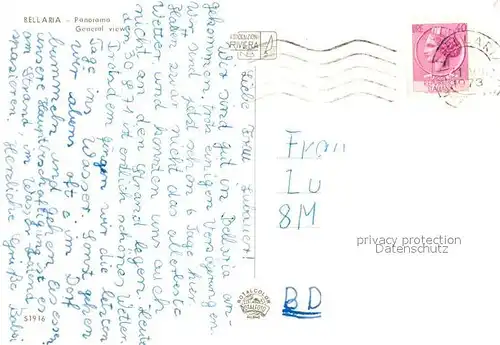 BELLARIA - Panorama
General view
Liebe Frau Zukausen!
Wir sind gut in Bellaria an-
gekommen, trotz einigen Verzögerungen.
Wir sind jetzt schon 6 Tage hier.
Haben zwar nicht das allerbeste
Wetter und konnten uns auch
nicht an den Strand legen. Heute
den 30.8.71 ist endlich schönes Wetter.
Trotzdem gingen wir die letzten
Tage ins Wasser. Sonst gehen
wir abends oft ins Dorf
bummeln und gehen Eis essen.
unsere Hauptbeschäftigung ist es
am Strand, im Wasser
Herzliche Grüße
51916
RIVIERA
1973
Frau
Lu
8M
BD
privacy protection
Datenschutz
ROTALCOLOR
ROTALFOTO
MILANO